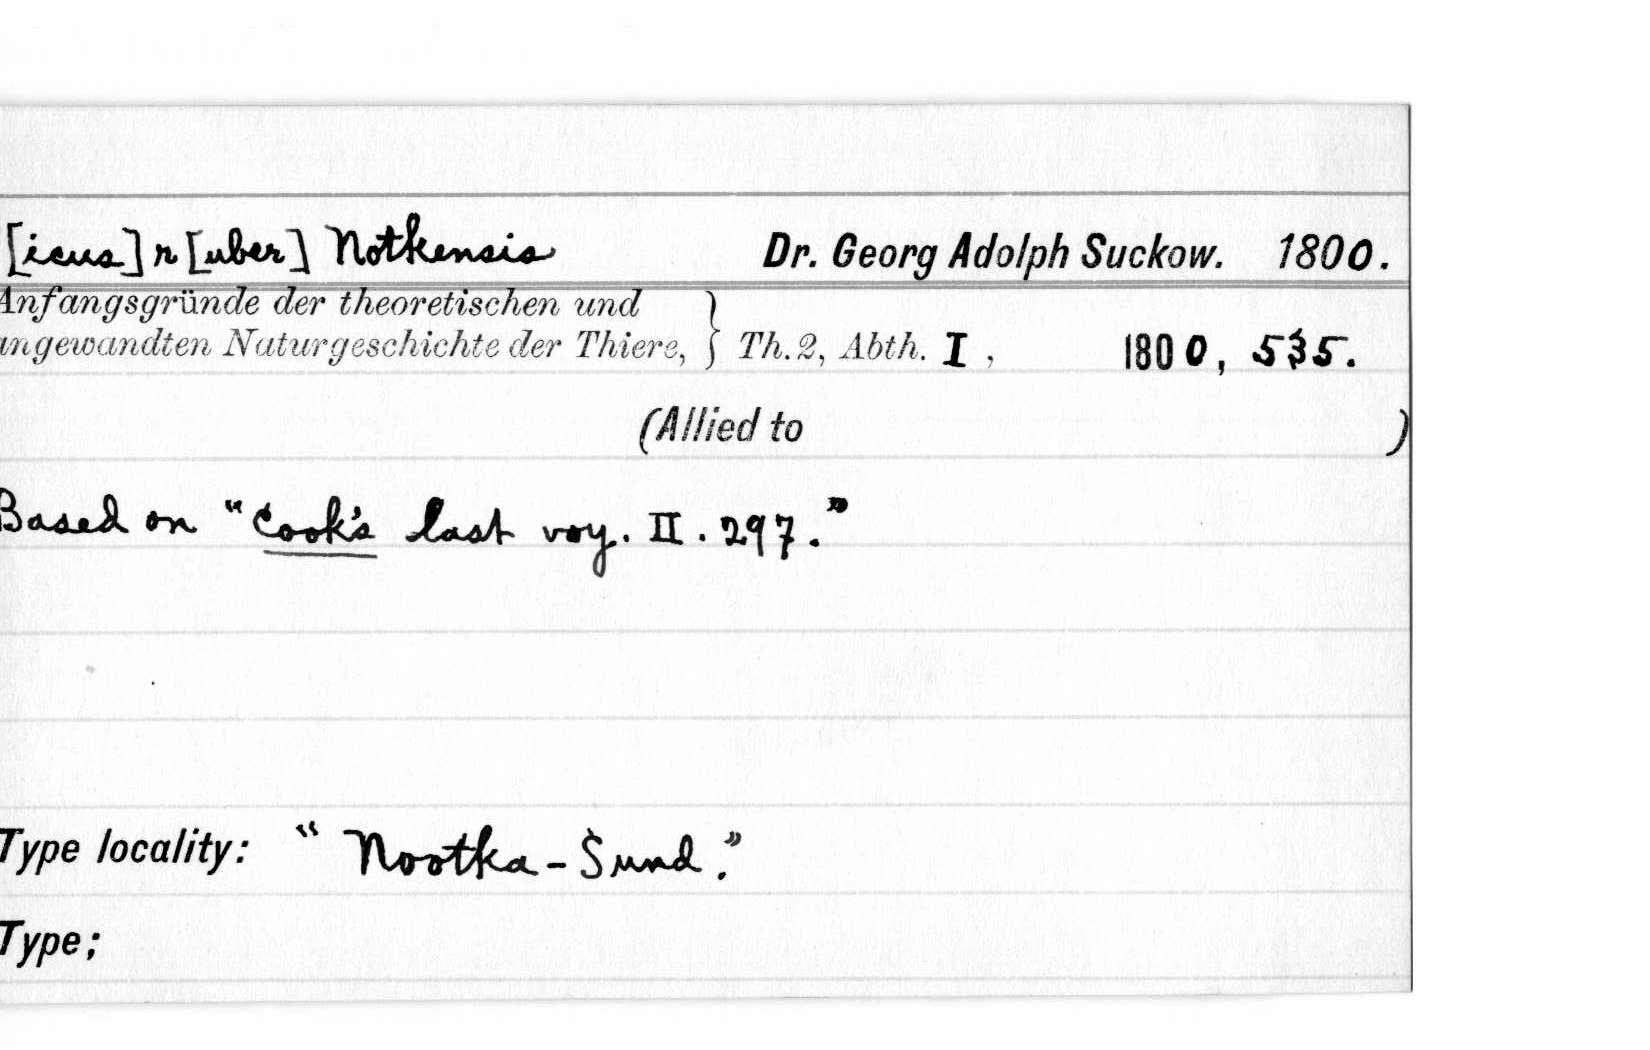 [icus] r [uber] Notkensis Dr. Georg Adolph Suckow. 1800.
Anfangsgründe der theoretischen und
angewandten Naturgeschichte der Thiere, } Th. 2, Abth. I, 1800, 535.
(Allied to )
Based on "Cook's last voy. II. 297."
Type locality: "Nootka-Sund."
Type;